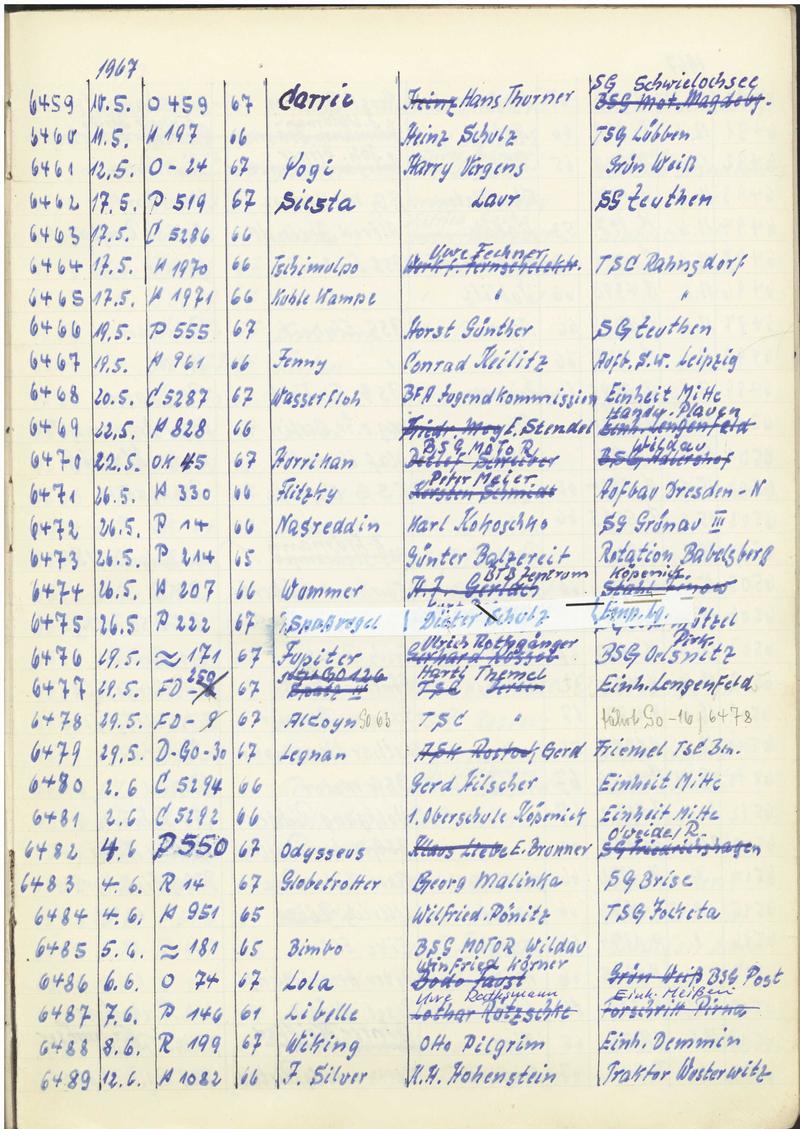 1967
6459 10.5. O 459 67 Carrie Heinz Hans Thurner SG Schwielochsee BSG Mot. Magdebg.
6460 11.5. H 197 66 Heinz Schulz TSG Lübben
6461 12.5. O - 24 67 Yogi Harry Vergens Grün Weiß
6462 17.5. P 519 67 Siesta Laur SG Zeuthen
6463 17.5. C 5286 66
6464 17.5. H 1970 66 Tschimulpo Uwe Fechner Werk f. Fernschelektr. TSC Rahnsdorf
6465 17.5. H 1971 66 Kuhle Wampe " "
6466 19.5. P 555 67 Horst Günther SG Zeuthen
6467 19.5. H 961 66 Fenny Conrad Heilitz Aufb. S.W. Leipzig
6468 20.5. C 5287 67 Wasserfloh BFA Jugendkommission Einheit Mitte
6469 22.5. H 828 66 F. Stendel Handw. Plauen Einh. Lengenfeld
6470 22.5. OK 45 67 Hurrikan BSG MOTOR Wildau BSG Adlershof
6471 26.5. H 330 66 Flitzky Peter Meier Kersten Schmidt Aufbau Dresden - N
6472 26.5. P 14 66 Nasreddin Karl Kokoschko SG Grünau III
6473 26.5. P 214 65 Günter Balzereit Rotation Babelsberg
6474 26.5. H 207 66 Wummer BFB Zentrum H.J. Gerlach Köpenick Stahl
6475 26.5 P 222 67 Spaßvogel Dieter Schulz Emp. Lg.
6476 29.5. ≈ 171 67 Jupiter Ulrich Rothgänger BSG Oelsnitz Pirk.
6477 29.5. FD - 250 67 GO 126 Spatz II Hartf Themel TSC Einh. Lengenfeld
6478 29.5. FD - 9 67 Aldoyn GO 63 TSC " führt GO - 16 / 6478
6479 29.5. D-GO-30 67 Legnan ASK Rostock, Gerd Friemel TSC Bln.
6480 2.6 C 5294 66 Gerd Hilscher Einheit Mitte
6481 2.6 C 5292 66 1. Oberschule Köpenick Einheit Mitte
6482 4.6. P 550 67 Odysseus Klaus Liebe E. Brunner SG Friedrichshagen
6483 4.6. R 14 67 Globetrotter Georg Malinka SG Brise
6484 4.6. H 951 65 Wilfried Pönitz TSG Jocketa
6485 5.6. ≈ 181 65 Bimbo BSG MOTOR Wildau
6486 6.6. O 74 67 Lola Winfried Körner Bodo Faust Grün Weiß BSG Post
6487 7.6. P 146 61 Libelle Uwe Rathsmann Lothar Rötzschke Einh. Meißen Forschritt Pirna
6488 8.6. R 199 67 Wiking Otto Pilgrim Einh. Demmin
6489 12.6. H 1082 66 F. Silver K.H. Hohenstein Traktor Westerwitz